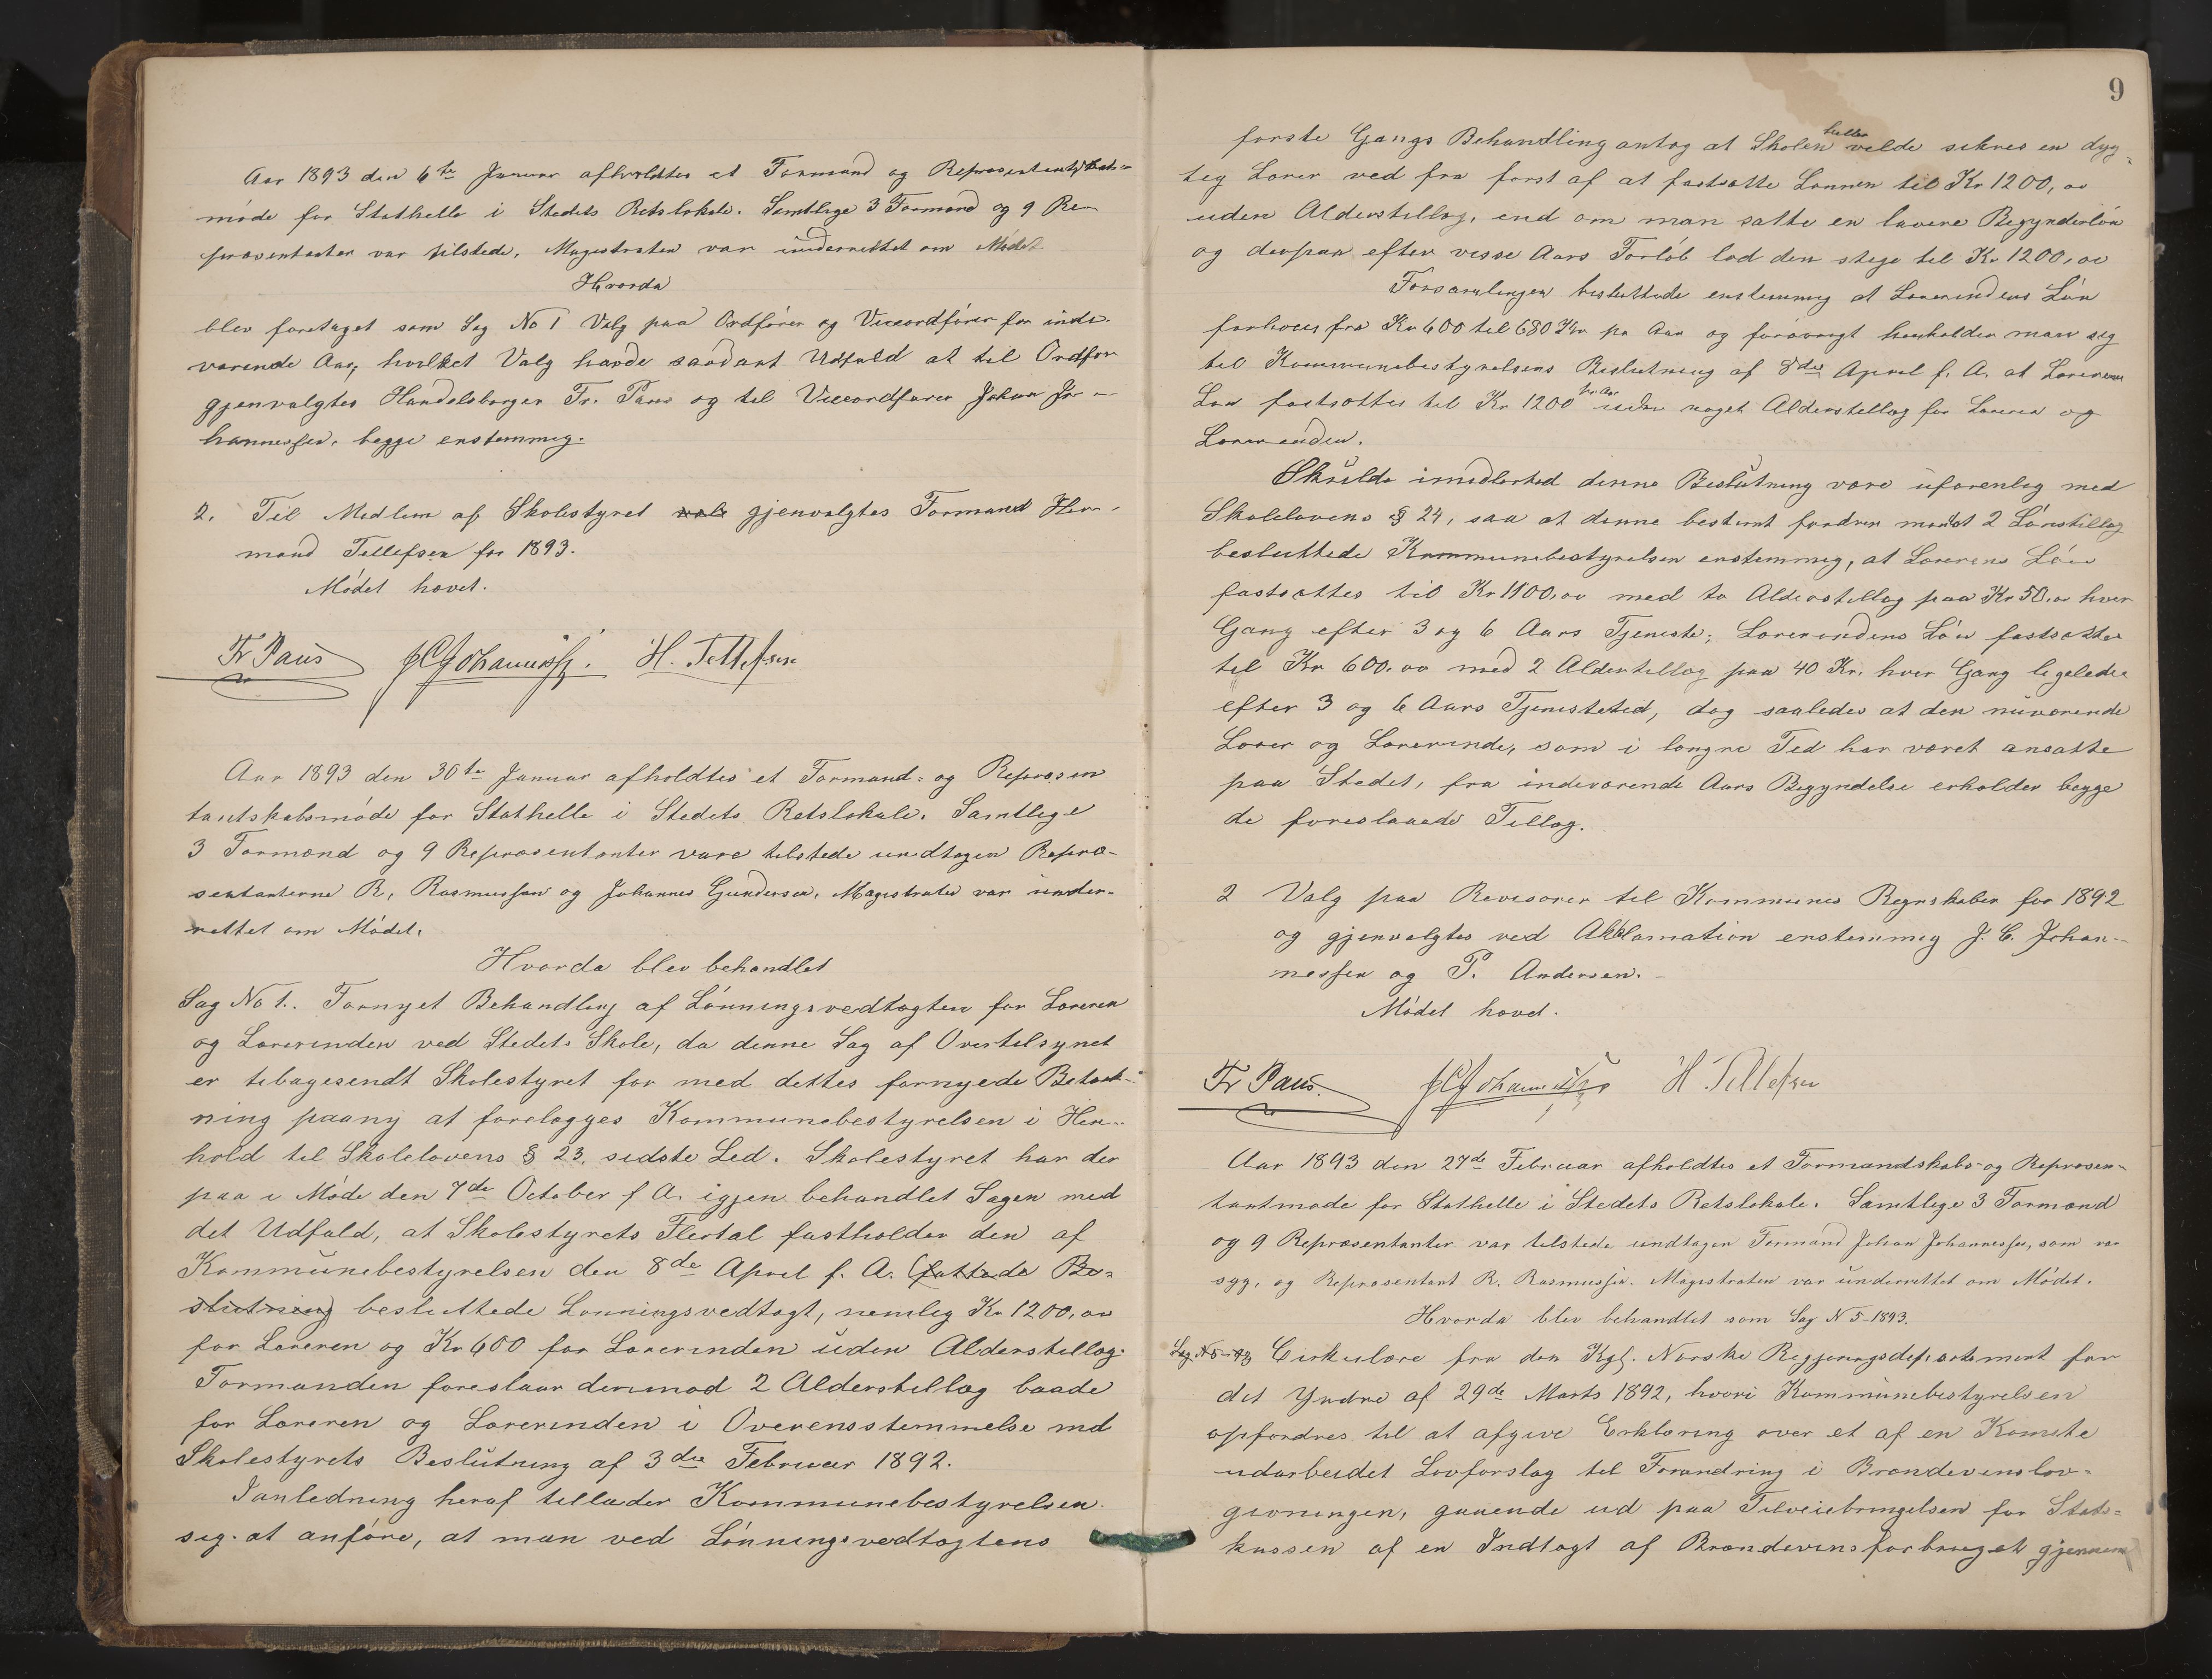 Aar 1893 den 6te Januar afholdtes et Formand og Repræsentantskabs-
møde for Stathelle i Stedets Retslokale. Samtlige 3 Formænd og 9 Re-
præsentanter var tilstede. Magistraten var underrettet om Mødet
Hvorda
blev foretaget som Sag No 1 Valg paa Ordfører og Viceordfører for inde-
værende Aar, hvilket Valg havde saadant Udfald at til Ordfør
gjenvalgtes Handelsborger Fr. Paus og til Viceordfører Johan Jo-
hannessen, begge enstemmig.
2. Til Medlem af Skolestyret valg gjenvalgtes Formand Her-
mand Tellefsen for 1893.
Mødet hævet.
Fr Paus J C Johannessen. H. Tellefsen
Aar 1893 den 30te Januar afholdtes et Formand- og Repræsen
tantskabsmøde for Stathelle i Stedets Retslokale. Samtlige
3 Formænd og 9 Repræsentanter vare tilstede undtagen Repræ-
sentanterne R. Rasmussen og Johannes Gundersen. Magistraten var under-
rettet om Mødet.
Hvorda blev behandlet
Sag No 1. Fornyet Behandling af Lønningsvedtægten for Læreren
og Lærerinden ved Stedets Skole, da denne Sag af Overtilsynet
er tilbagesendt Skolestyret for med dettes fornyede Betænk-
ning paany at forelægges Kommunebestyrelsen i Hen-
hold til Skolelovens § 23, sidste Led. Skolestyret har der
paa i Møde den 7de October f A. igjen behandlet Sagen med
det Udfald, at Skolestyrets Flertal fastholder den af
Kommunebestyrelsen den 8de April f. A. (fattede Be-
slutning) besluttede Lønningsvedtægt, nemlig Kr 1200,00
for Læreren og Kr 600 for Lærerinden uden Alderstillæg.
Formanden foreslaar derimod 2 Alderstillæg baade
for Læreren og Lærerinden i Overensstemmelse md
Skolestyrets Beslutning af 3die Februar 1892.
I anledning heraf tillader Kommunebestyrelsen
sig at anføre, at man ved Lønningsvedtægtens
9
første Gangs Behandling antog at Skolen heller vilde sikres en dyg-
tig Lærer ved fra først af at fastsætte Lønnen til Kr 1200,00
uden Alderstillæg, end om man satte en lavere Begynderløn
og derpaa efter visse Aars Forløb lod den stige til Kr. 1200,00
Forsamlingen besluttede enstemmig at Lærerindens Løn
forhøies fra Kr 600 til 680 Kr pr Aar og forøvrigt henholder man sig
til Kommunebestyrelsens Beslutning af 8de April f. A. at Lærerens
Løn fastsættes til Kr 1200 pr. Aar uden noget Alderstillæg for Læreren og
Lærerinden.
Skulde imidlertid denne Beslutning være uforenlig med
Skolelovens § 24, saa at denne bestemt fordrer mindst 2 Lønstillæg
besluttede Kommunebestyrelsen enstemmig, at Lærerens Løn
fastsættes til Kr 1100,00 med to Alderstillæg paa Kr 50,00 hver
Gang efter 3 og 6 Aars Tjeneste; Lærerindens Løn fastsættes
til Kr 600.00 med 2 Alderstillæg paa 40 Kr. hver Gang ligeledes
efter 3 og 6 Aars Tjenestetid, dog saaledes at den nuværende
Lærer og Lærerinde, som i længre Tid har været ansatte
paa Stedet, fra indeværende Aars Begyndelse erholder begge
de foreslaaede Tillæg.
2 Valg paa Revisorer til Kommunes Regnskaber for 1892
og gjenvalgtes ved Akklamation enstemmig J. C. Johan-
nessen og P. Andersen.
Mødet hævet.
Fr Paus. J C Johannessen H Tellefsen
Aar 1893 den 27de Februar afholdtes et Formandskabs- og Repræsen-
tantmøde for Stathelle i Stedets Retslokale. Samtlige 3 Formænd
og 9 Repræsentanter var tilstede undtagen Formand Johan Johannessen, som var
syg, og Repræsentant R. Rasmussen. Magistraten var underrettet om Mødet.
Hvorda blev behandlet som Sag N 5-1893.
Sag N 5-93 Cirkulære fra den Kgl. Norske Regjeringsdepartement for
det Indre af 29de Marts 1892, hvori Kommunebestyrelsen
opfordres til at afgive Erklæring over et af en Komite
udarbeidet Lovforslag til Forandring i Brændevinslov-
givningen, gaaende ud paa Tilveiebringelsen for Stats-
kassen af en Indtægt af Brændevinsforbruget gjennem